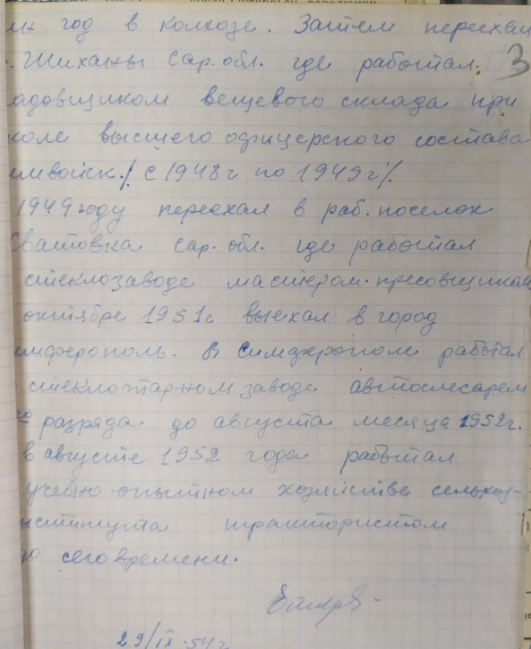 год в колхозе. Затем переехал
Шиханы Сар. обл. где работал. 3
адовщиком вещевого склада при
коле высшего офицерского состава
имвойск. /с 1948 г по 1949 г/.
1949 году переехал в раб. поселок
ватовка Сар. обл. где работал
стеклозаводе мастером-пресовщиком
октябре 1951 г выехал в город
имферополь. В Симферополе работал
стеклотарном заводе автослесарем
разряда до августа месяца 1952 г.
в августе 1952 года работал
учебно-опытном хозяйстве сельхоз-
нститута трактористом
о сего времени.
29/IX-54 г.